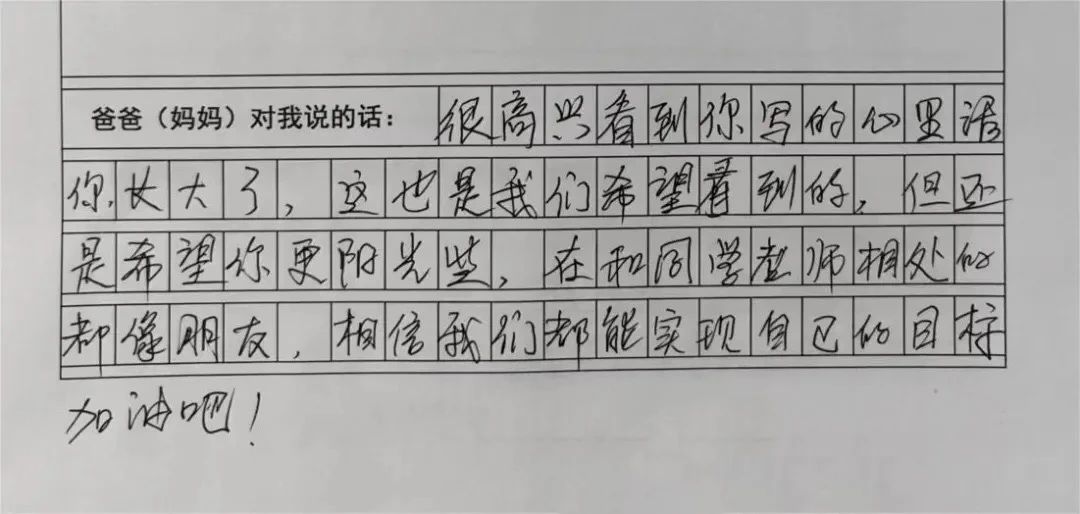 爸爸（妈妈）对我说的话：很高兴看到你写的心里话
你长大了，这也是我们希望看到的，但还
是希望你更阳光些，在和同学老师相处的
都像朋友，相信我们都能实现自己的目标
加油吧！